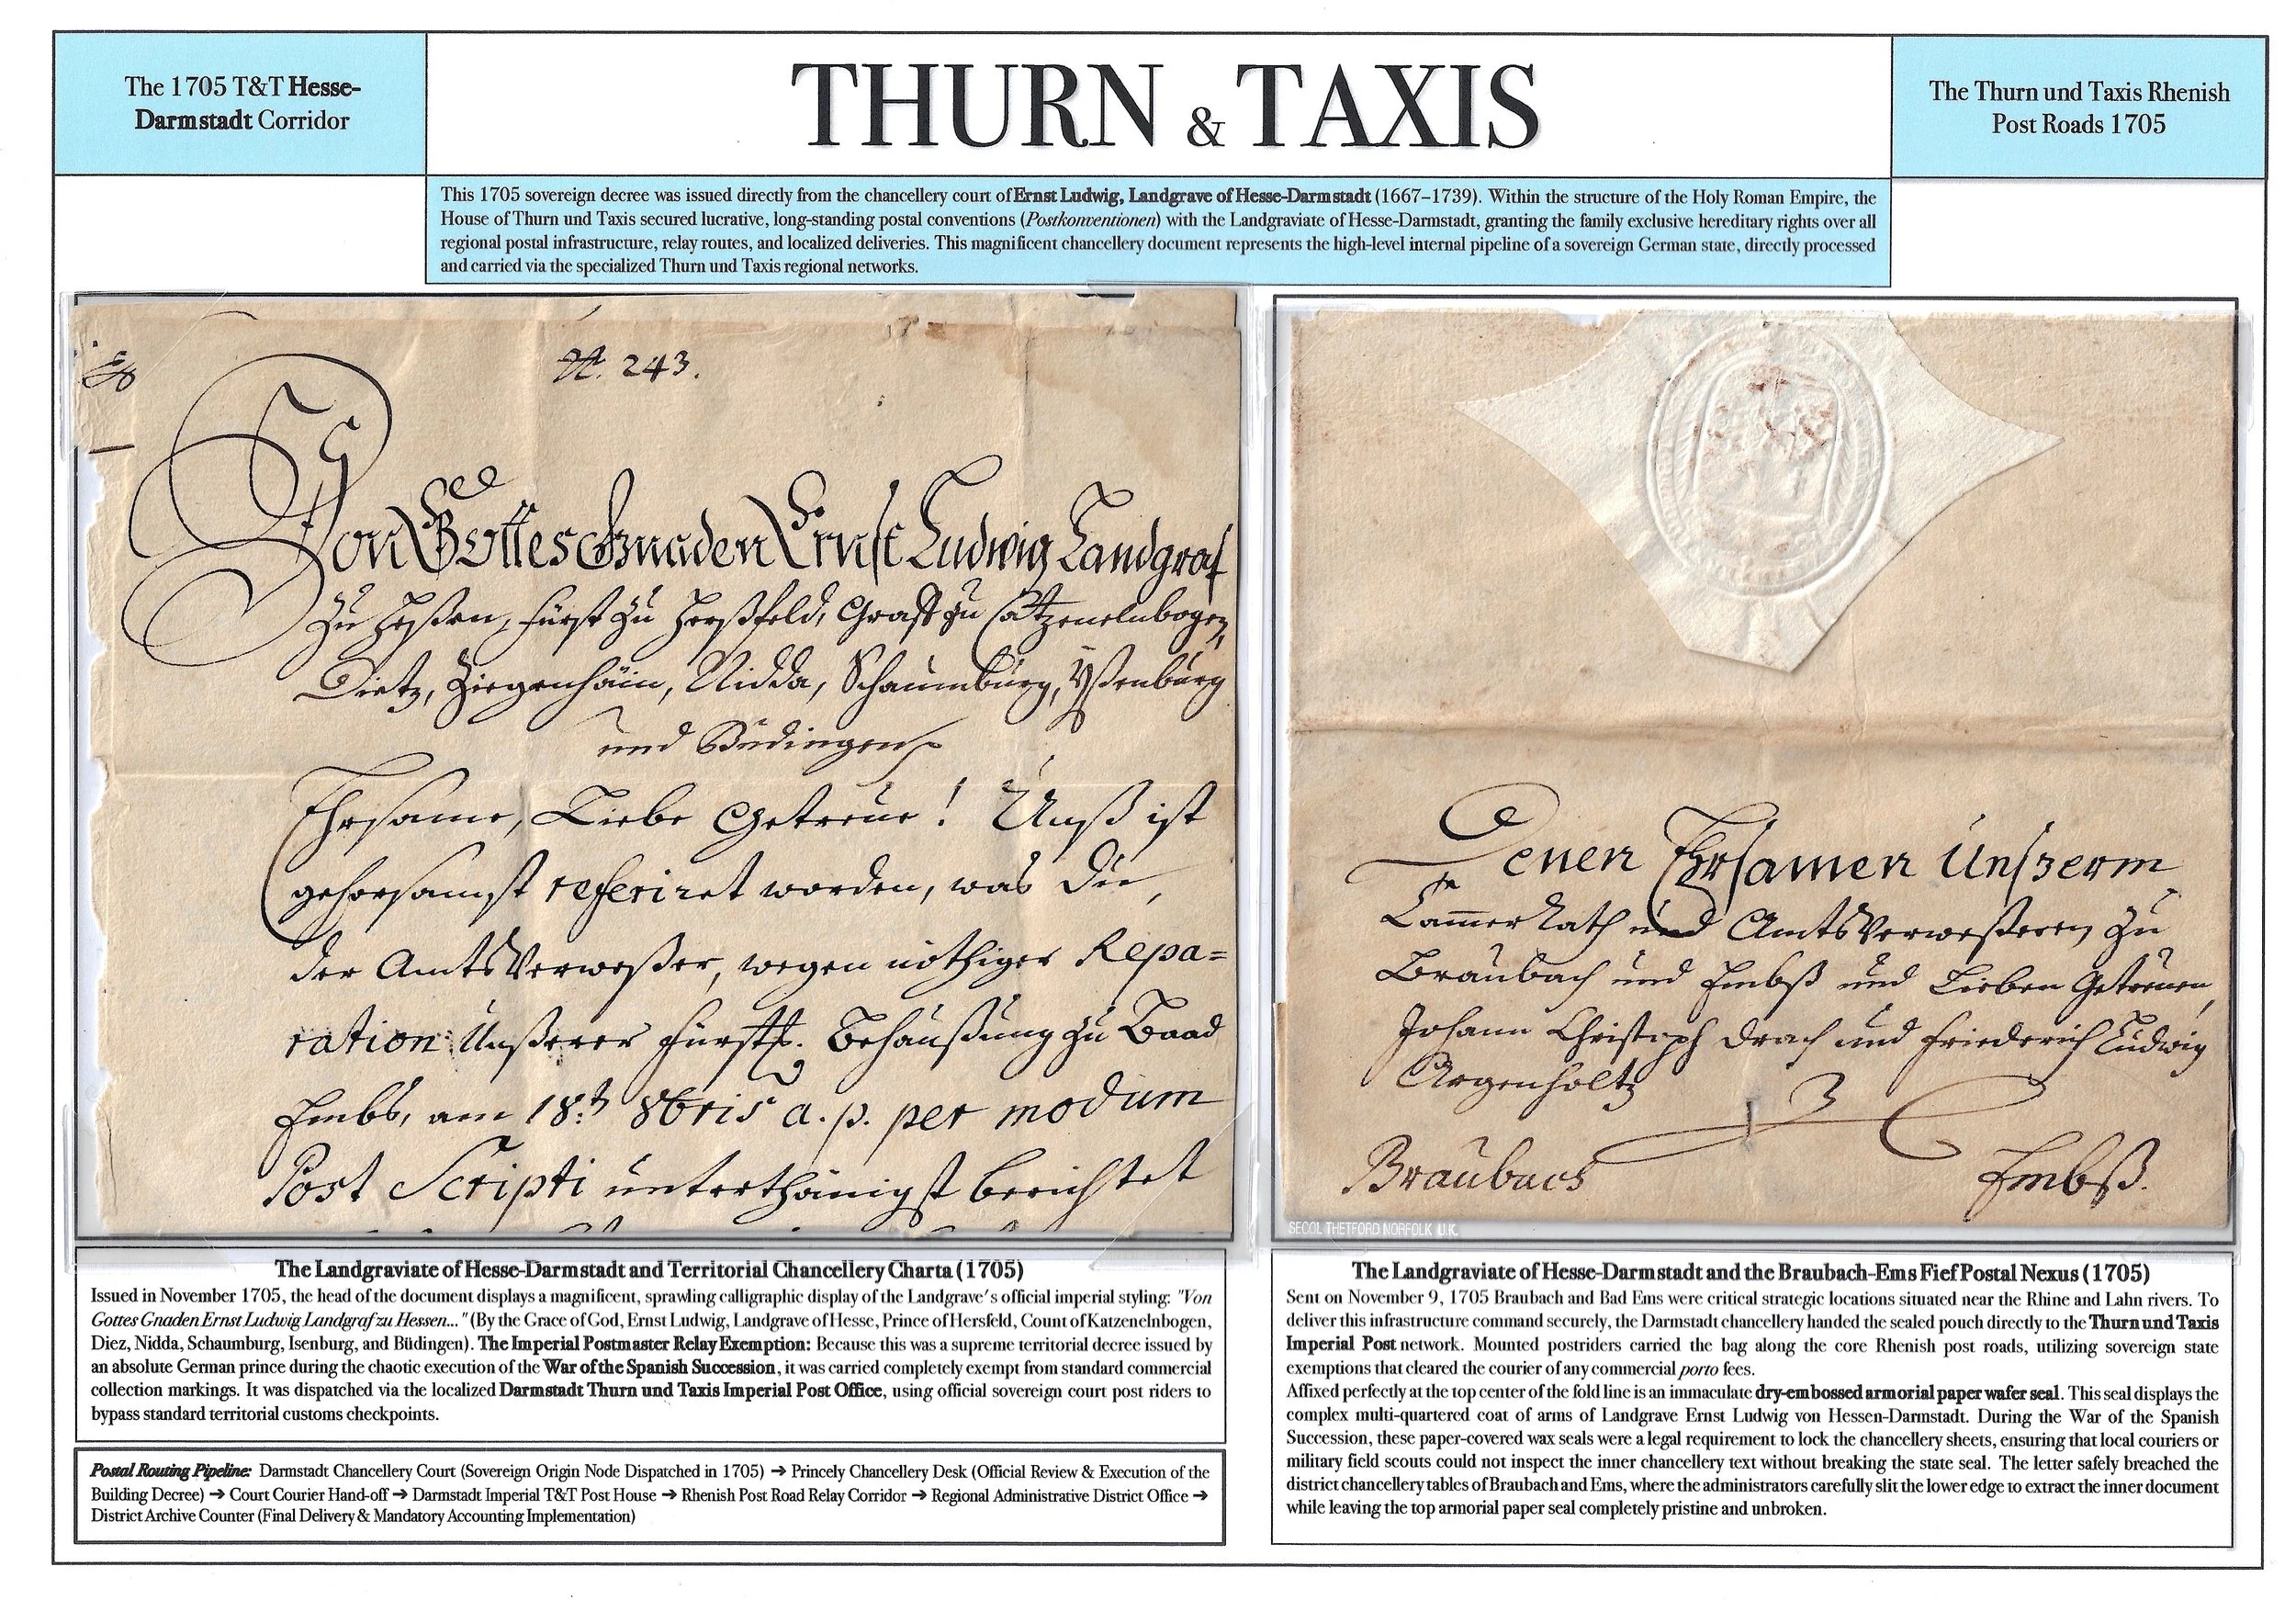 The 1705 T&T Hesse-
Darmstadt Corridor
THURN & TAXIS
The Thurn und Taxis Rhenish
Post Roads 1705
This 1705 sovereign decree was issued directly from the chancellery court of Ernst Ludwig, Landgrave of Hesse-Darmstadt (1667–1739). Within the structure of the Holy Roman Empire, the
House of Thurn und Taxis secured lucrative, long-standing postal conventions (Postkonventionen) with the Landgraviate of Hesse-Darmstadt, granting the family exclusive hereditary rights over all
regional postal infrastructure, relay routes, and localized deliveries. This magnificent chancellery document represents the high-level internal pipeline of a sovereign German state, directly processed
and carried via the specialized Thurn und Taxis regional networks.
N. 243.
Von Gottes Gnaden Ernst Ludwig Landgraf
zu Heßen, Fürst zu Herßfeld, Graff zu Catzenelnbogen,
Dietz, Ziegenhäin, Nidda, Schaumburg, Yßenburg
und Büdingen
Ehrsame, Liebe Getreue! Unß ist
gehorsamst referiret worden, was Du,
der AmtsVerweßer, wegen nöthiger Repa=
ration Unßerer Fürstl. Behaußung zu Baad
Embs, am 18.t 8bris a. p. per modum
Post Scripti unterthänigst berichtet
Denen Ehrsamen Unserm
Cammer Rath und AmtsVerweßeren zu
Braubach und Embß und Lieben Getreuen,
Johann Christoph Drach und Friederich Ludwig
Argenholtz
Braubach Embß.
SECOL THETFORD NORFOLK U.K.
The Landgraviate of Hesse-Darmstadt and Territorial Chancellery Charta (1705)
Issued in November 1705, the head of the document displays a magnificent, sprawling calligraphic display of the Landgrave's official imperial styling: "Von
Gottes Gnaden Ernst Ludwig Landgraf zu Hessen..." (By the Grace of God, Ernst Ludwig, Landgrave of Hesse, Prince of Hersfeld, Count of Katzenelnbogen,
Diez, Nidda, Schaumburg, Isenburg, and Büdingen). The Imperial Postmaster Relay Exemption: Because this was a supreme territorial decree issued by
an absolute German prince during the chaotic execution of the War of the Spanish Succession, it was carried completely exempt from standard commercial
collection markings. It was dispatched via the localized Darmstadt Thurn und Taxis Imperial Post Office, using official sovereign court post riders to
bypass standard territorial customs checkpoints.
Postal Routing Pipeline: Darmstadt Chancellery Court (Sovereign Origin Node Dispatched in 1705) ➔ Princely Chancellery Desk (Official Review & Execution of the
Building Decree) ➔ Court Courier Hand-off ➔ Darmstadt Imperial T&T Post House ➔ Rhenish Post Road Relay Corridor ➔ Regional Administrative District Office ➔
District Archive Counter (Final Delivery & Mandatory Accounting Implementation)
The Landgraviate of Hesse-Darmstadt and the Braubach-Ems Fief Postal Nexus (1705)
Sent on November 9, 1705 Braubach and Bad Ems were critical strategic locations situated near the Rhine and Lahn rivers. To
deliver this infrastructure command securely, the Darmstadt chancellery handed the sealed pouch directly to the Thurn und Taxis
Imperial Post network. Mounted postriders carried the bag along the core Rhenish post roads, utilizing sovereign state
exemptions that cleared the courier of any commercial porto fees.
Affixed perfectly at the top center of the fold line is an immaculate dry-embossed armorial paper wafer seal. This seal displays the
complex multi-quartered coat of arms of Landgrave Ernst Ludwig von Hessen-Darmstadt. During the War of the Spanish
Succession, these paper-covered wax seals were a legal requirement to lock the chancellery sheets, ensuring that local couriers or
military field scouts could not inspect the inner chancellery text without breaking the state seal. The letter safely breached the
district chancellery tables of Braubach and Ems, where the administrators carefully slit the lower edge to extract the inner document
while leaving the top armorial paper seal completely pristine and unbroken.